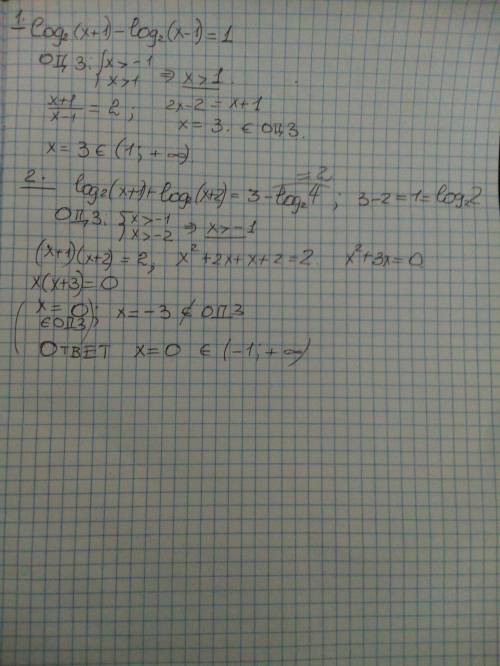 1. log₂(x+1)-log₂(x-1)=1
ОЦЗ. {x>-1 x>1 ⇒ x>1.
(x+1)/(x-1) = 2; 2x-2 = x+1
x = 3. ∈ ОЦЗ.
x = 3 ∈ (1; +∞)
2. =2
log₂(x+1)+log₂(x+2) = 3 - log₂4; 3-2=1=log₂2
ОЦЗ. {x>-1 x>-2 ⇒ x>-1
(x+1)(x+2) = 2, x²+2x+x+2=2 x²+3x=0
x(x+3)=0
(x=0; x=-3 ∉ ОДЗ
∈ОДЗ)
Ответ x=0 ∈ (-1; +∞)